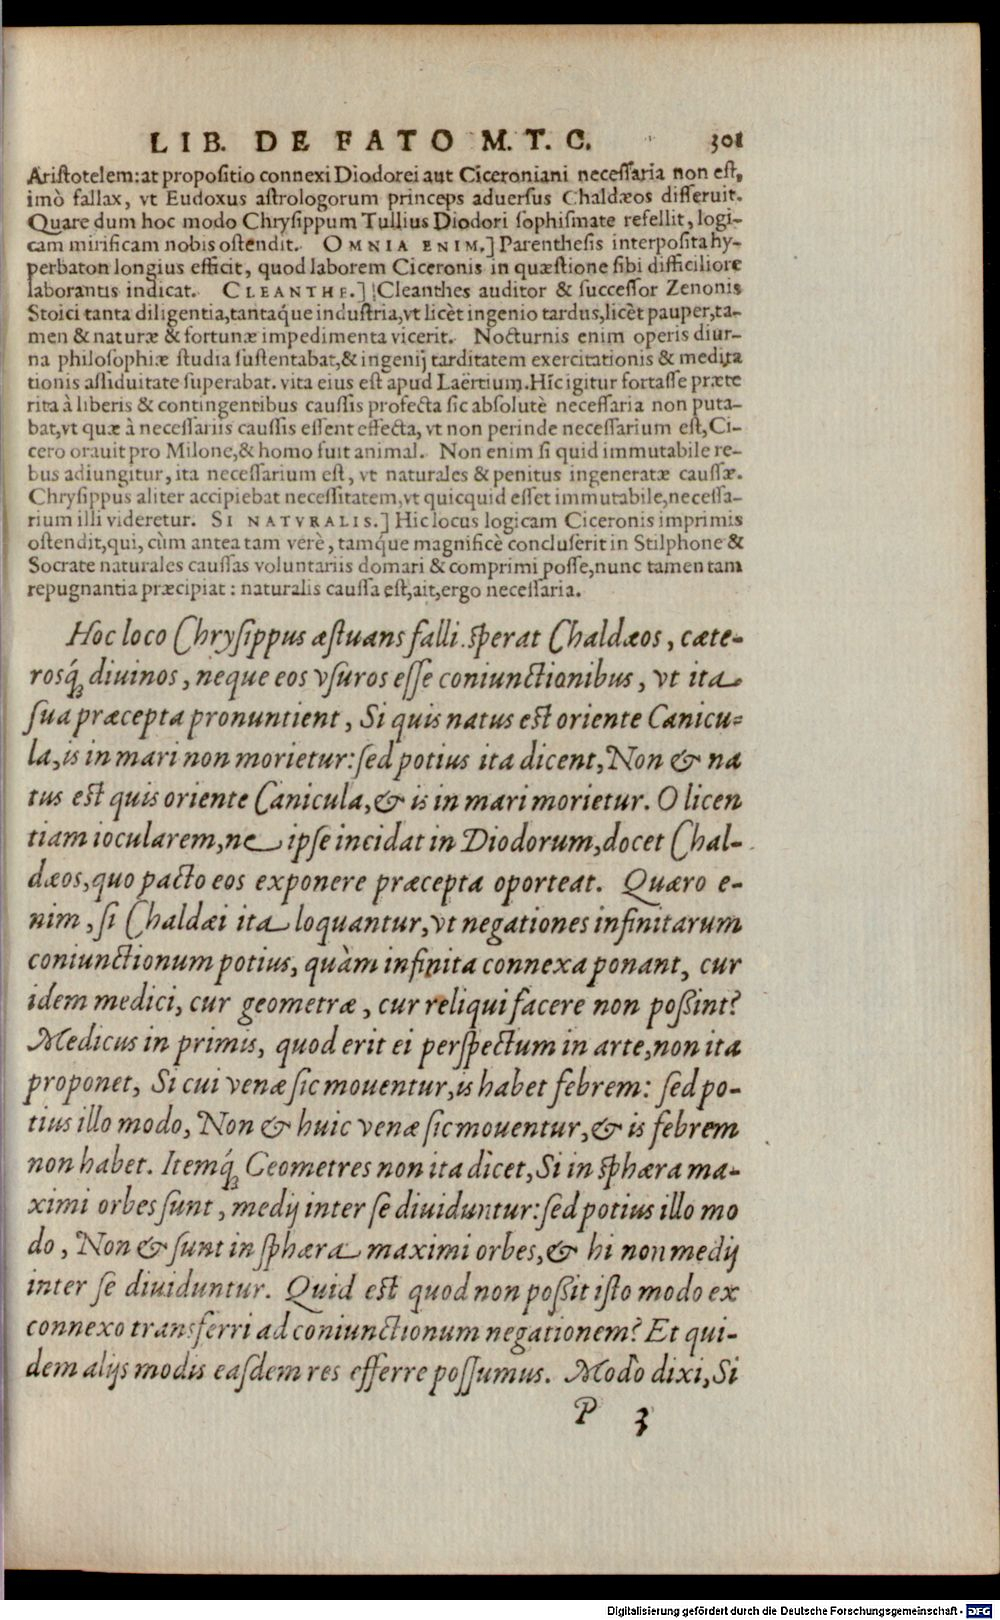 LIB. DE FATO M. T. C. 301
Aristotelem: at propositio connexi Diodorei aut Ciceroniani necessaria non est,
imò fallax, vt Eudoxus astrologorum princeps aduersus Chaldæos disseruit.
Quare dum hoc modo Chrysippum Tullius Diodori sophismate refellit, logi-
cam mirificam nobis ostendit. OMNIA ENIM.] Parenthesis interposita hy-
perbaton longius efficit, quod laborem Ciceronis in quæstione sibi difficiliore
laborantis indicat. CLEANTHE.] Cleanthes auditor & successor Zenonis
Stoici tanta diligentia, tantaq́ue industria, vt licèt ingenio tardus, licèt pauper, ta-
men & naturæ & fortunæ impedimenta vicerit. Nocturnis enim operis diur-
na philosophiæ studia sustentabat, & ingenij tarditatem exercitationis & medita
tionis assiduitate superabat. vita eius est apud Laërtium. Hîc igitur fortasse præte
rita à liberis & contingentibus caussis profecta sic absolutè necessaria non puta-
bat, vt quæ à necessariis caussis essent effecta, vt non perinde necessarium est, Ci-
cero orauit pro Milone, & homo fuit animal. Non enim si quid immutabile re-
bus adiungitur, ita necessarium est, vt naturales & penitus ingeneratæ caussæ.
Chrysippus aliter accipiebat necessitatem, vt quicquid esset immutabile, necessa-
rium illi videretur. SI NATVRALIS.] Hic locus logicam Ciceronis imprimis
ostendit, qui, cùm antea tam verè, tamq́ue magnificè concluserit in Stilphone &
Socrate naturales caussas voluntariis domari & comprimi posse, nunc tamen tam
repugnantia præcipiat: naturalis caussa est, ait, ergo necessaria.
Hoc loco Chrysippus æstuans falli sperat Chaldæos, cæte-
rosq́; diuinos, neque eos vsuros esse coniunctionibus, vt ita
sua præcepta pronuntient, Si quis natus est oriente Canicu-
la, is in mari non morietur: sed potius ita dicent, Non & na
tus est quis oriente Canicula, & is in mari morietur. O licen
tiam iocularem, ne ipse incidat in Diodorum, docet Chal-
dæos, quo pacto eos exponere præcepta oporteat. Quæro e-
nim, si Chaldæi ita loquantur, vt negationes infinitarum
coniunctionum potius, quàm infinita connexa ponant, cur
idem medici, cur geometræ, cur reliqui facere non poßint?
Medicus in primis, quod erit ei perspectum in arte, non ita
proponet, Si cui venæ sic mouentur, is habet febrem: sed po-
tius illo modo, Non & huic venæ sic mouentur, & is febrem
non habet. Itemq́; Geometres non ita dicet, Si in sphæra ma-
ximi orbes sunt, medij inter se diuiduntur: sed potius illo mo
do, Non & sunt in sphæra maximi orbes, & hi non medij
inter se diuiduntur. Quid est quod non poßit isto modo ex
connexo transferri ad coniunctionum negationem? Et qui-
dem alijs modis easdem res efferre possumus. Modò dixi, Si
P 3
Digitalisierung gefördert durch die Deutsche Forschungsgemeinschaft - DFG